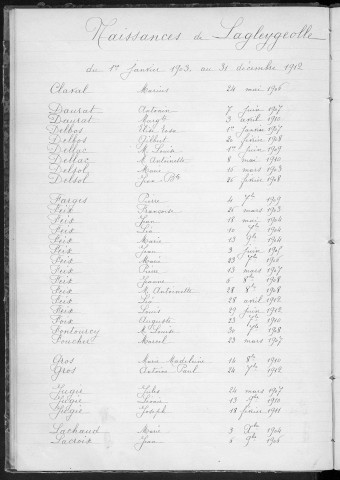 Naissances de Lagleygeolle
du 1er janvier 1903 au 31 décembre 1912
Claval Marius 24 mai 1906
Daurat Antonin 7 juin 1907
Daurat Marg^te 3 avril 1910
Delbos 1er janvier 1907
Delbos Gilbert 20 février 1908
Dellac M. Louise 1er juin 1909
Dellac M. Antoinette 8 mai 1910
Delsol Marie 16 mars 1903
Delsol Jean Bte 26 février 1908
Farges Pierre 4 7bre 1909
Feix Françoise 26 mars 1903
Feix Jean 18 mai 1904
Feix Léa 10 7bre 1904
Feix Marie 13 9bre 1904
Feix Jean 3 juin 1905
Feix Marie 23 7bre 1906
Feix Pierre 13 mars 1907
Feix Jeanne 5 8bre 1908
Feix M. Antoinette 28 8bre 1908
Feix 28 avril 1912
Feix Louis 29 juin 1912
Foix Auguste 23 1910
Fontourcy M. Louise 30 7bre 1908
Foucher Marcel 23 mars 1907
Gros Marie Madeleine 14 8bre 1910
Gros Antoine Paul 24 7bre 1912
Jugie Jules 24 mars 1907
Jugie Louis 13 9bre 1910
Jugie Joseph 18 février 1911
Lachaud Marie 9 Xbre 1904
Lacroix Jean 8 9bre 1906